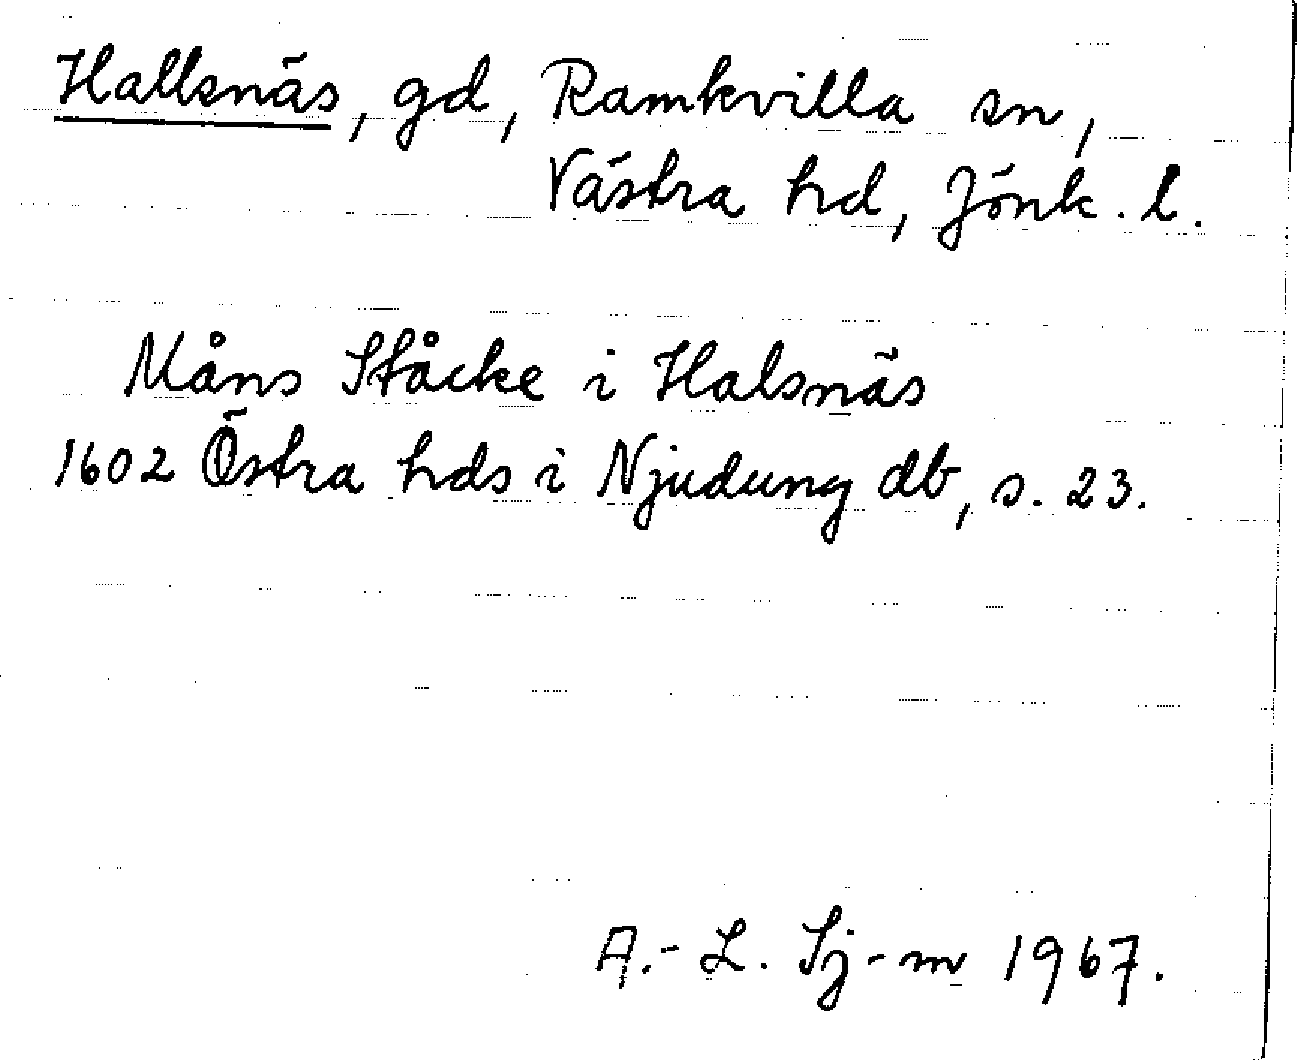 Hallsnäs, gd, Ramkvilla sn,
Västra hd, Jönk. l.
Måns Ståcke i Halsnäs
1602 Östra hds i Njudung db, s. 23.
A.-L. Sj-m 1967.